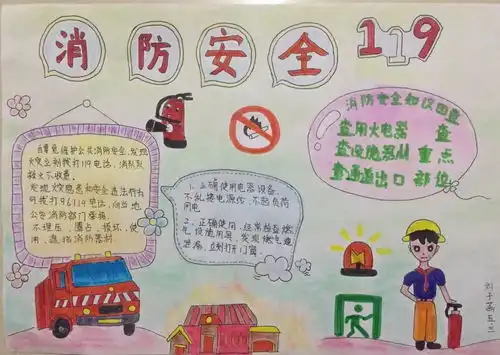 消防安全 119
自觉维护公共消防安全,发现
火灾立刻拨打119电话,消防队
救火不收费。
发现火灾隐患和安全违法行为
可拨打96119电话,向当地
公安消防部门举报。
不埋压、圈占、损坏、使
用、遮挡消防器材。
1、正确使用电器设备,
不乱接电源线,不超负荷
用电
2、正确使用、经常检查燃
气设施用具,发现燃气
泄漏,立刻打开门窗。
消防安全知识四查
查用火电器 查
查设施器材 重点
查通道出口 部位
刘子涵五三